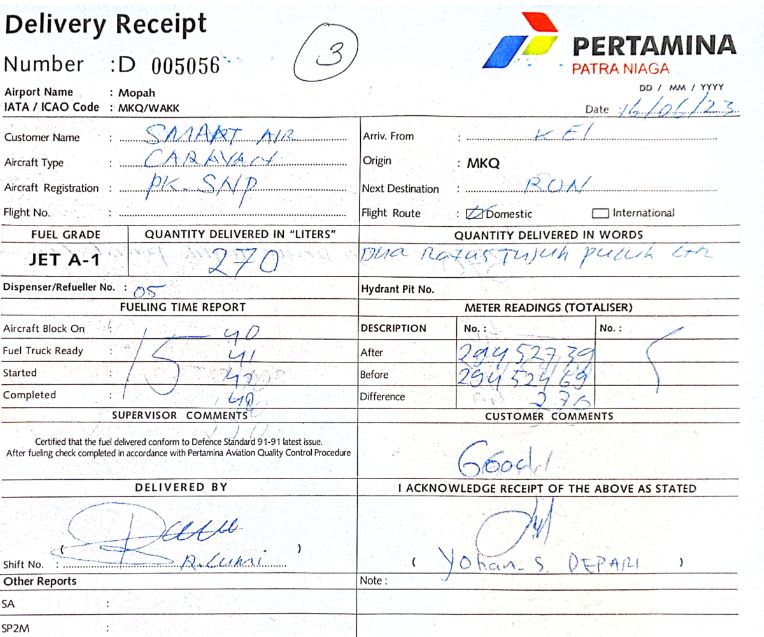 Delivery Receipt
Number : D 005056
3
PERTAMINA
PATRA NIAGA
Airport Name : Mopah
IATA / ICAO Code : MKQ/WAKK
DD / MM / YYYY
Date 16/06/23
Customer Name : SMART AIR
Arriv. From : KEI
Aircraft Type : CARAVAN
Origin : MKQ
Aircraft Registration : PK. SNP
Next Destination : RON
Flight No. :
Flight Route : Domestic International
FUEL GRADE QUANTITY DELIVERED IN "LITERS" QUANTITY DELIVERED IN WORDS
JET A-1 270 Dua Ratus Tujuh puluh Ltr
Dispenser/Refueller No. : 05
Hydrant Pit No.
FUELING TIME REPORT METER READINGS (TOTALISER)
Aircraft Block On : 15 40
DESCRIPTION No. : No. :
Fuel Truck Ready : 41
After 29452739
Started : 42
Before 29452469
Completed : 48
Difference 270
SUPERVISOR COMMENTS CUSTOMER COMMENTS
Certified that the fuel delivered conform to Defence Standard 91-91 latest issue.
After fueling check completed in accordance with Pertamina Aviation Quality Control Procedure
Good
DELIVERED BY I ACKNOWLEDGE RECEIPT OF THE ABOVE AS STATED
Shift No. :
( ) ( Yohan. S. DEPARI )
Other Reports Note :
SA :
SP2M :